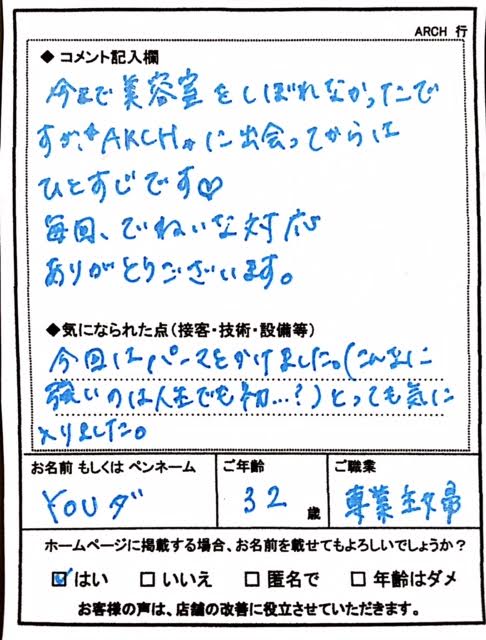 ARCH 行
◆ コメント記入欄
今まで美容室をしぼれなかったんで
すが、☆ARCH☆に出会ってからは
ひとすじです♡
毎回、ていねいな対応
ありがとうございます。
◆気になられた点(接客・技術・設備等)
今回はパーマをかけました。(こんなに
強いのは人生でも初…?)とっても気に
入りました。
お名前 もしくは ペンネーム ご年齢 ご職業
YOUダ 32 歳 専業主婦
ホームページに掲載する場合、お名前を載せてもよろしいでしょうか?
☑ はい □ いいえ □ 匿名で □ 年齢はダメ
お客様の声は、店舗の改善に役立させていただきます。